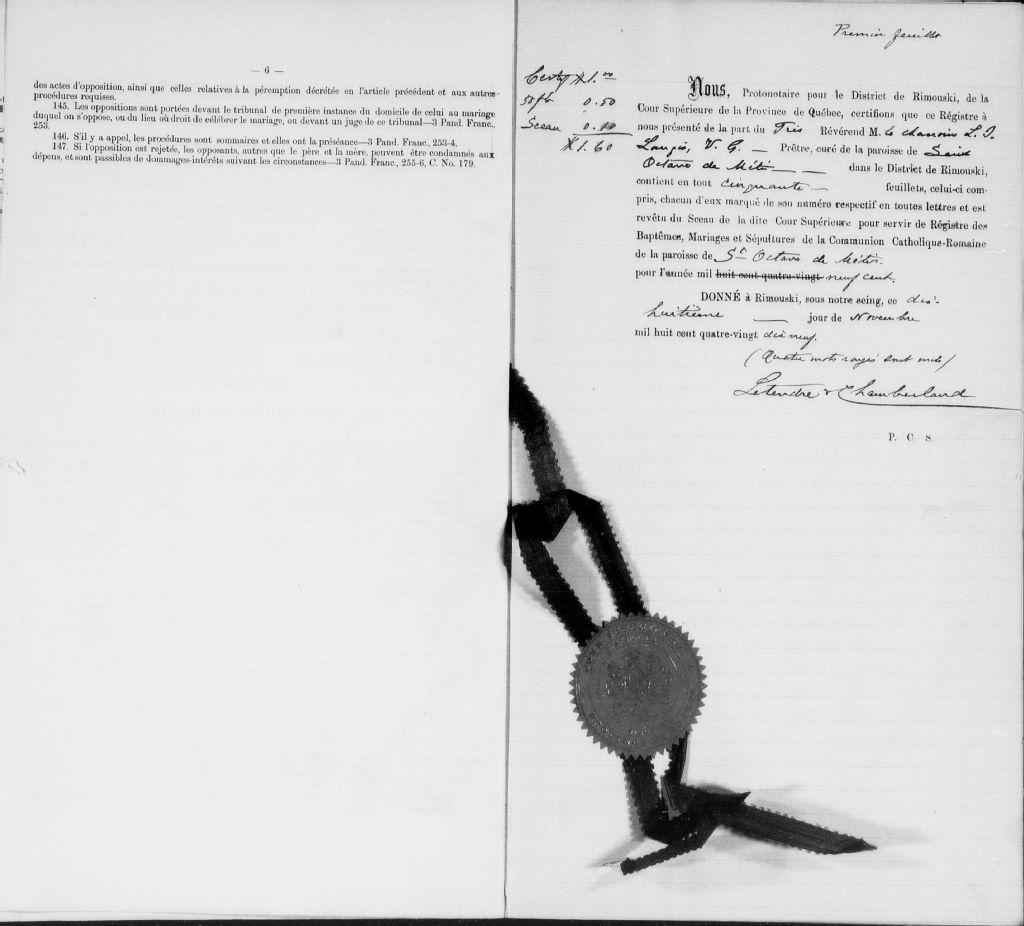 — 6 —
des actes d'opposition, ainsi que celles relatives à la péremption décrétée en l'article précédent et aux autres
procédures requises.
145. Les oppositions sont portées devant le tribunal de première instance du domicile de celui au mariage
duquel on s'oppose, ou du lieu où droit de célébrer le mariage, ou devant un juge de ce tribunal—3 Pand. Franc.,
253.
146. S'il y a appel, les procédures sont sommaires et elles ont la préséance—3 Pand. Franc., 253-4.
147. Si l'opposition est rejetée, les opposants, autres que le père et la mère, peuvent être condamnés aux
dépens, et sont passibles de dommages-intérêts suivant les circonstances—3 Pand. Franc., 255-6, C. No. 179.
Premier feuillet
1.00
50 fts 0.50
Sceau 0.10
1.60
Nous, Protonotaire pour le District de Rimouski, de la
Cour Supérieure de la Province de Québec, certifions que ce Régistre à
nous présenté de la part du Très Révérend M. le chanoine L. J.
Langis, V. G. — Prêtre, curé de la paroisse de Saint
Octave de Métis — — dans le District de Rimouski,
contient en tout cinquante — feuillets, celui-ci com-
pris, chacun d'eux marqué de son numéro respectif en toutes lettres et est
revêtu du Sceau de la dite Cour Supérieure pour servir de Régistre des
Baptêmes, Mariages et Sépultures de la Communion Catholique-Romaine
de la paroisse de St Octave de Métis.
pour l'année mil huit cent quatre-vingt neuf cent.
DONNÉ à Rimouski, sous notre seing, ce dix-
huitième — jour de Novembre
mil huit cent quatre-vingt dix neuf.
(Quatre mots rayés sont nuls)
Letendre & Chamberland
P. C. S.